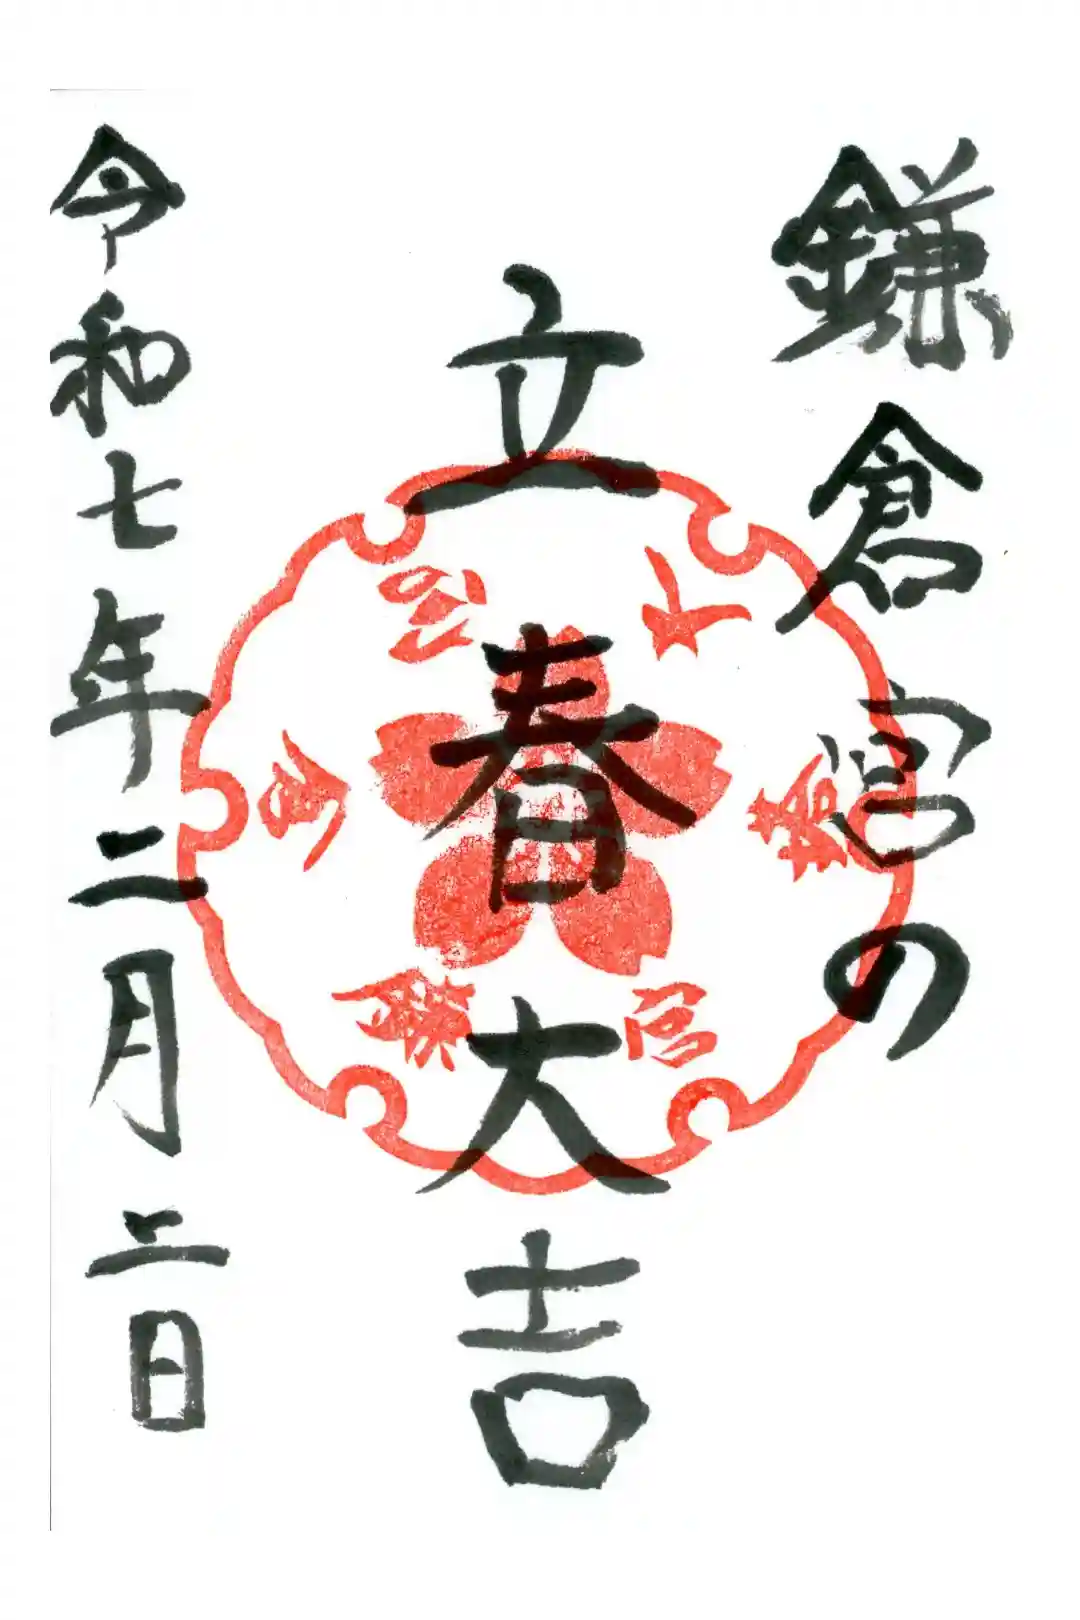 鎌倉宮の
立春大吉
令和七年二月二日